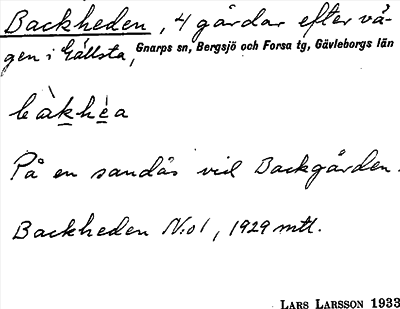 Backheden, 4 gårdar efter vä-
gen i Gällsta, Gnarps sn, Bergsjö och Forsa tg, Gävleborgs län
bàkhèa
På en sandås vid Backgården.
Backheden No 1, 1929 mtl.
LARS LARSSON 1933